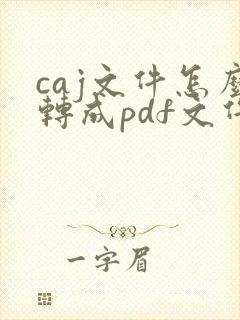 caj文件怎麼
轉成pdf文件
一字眉